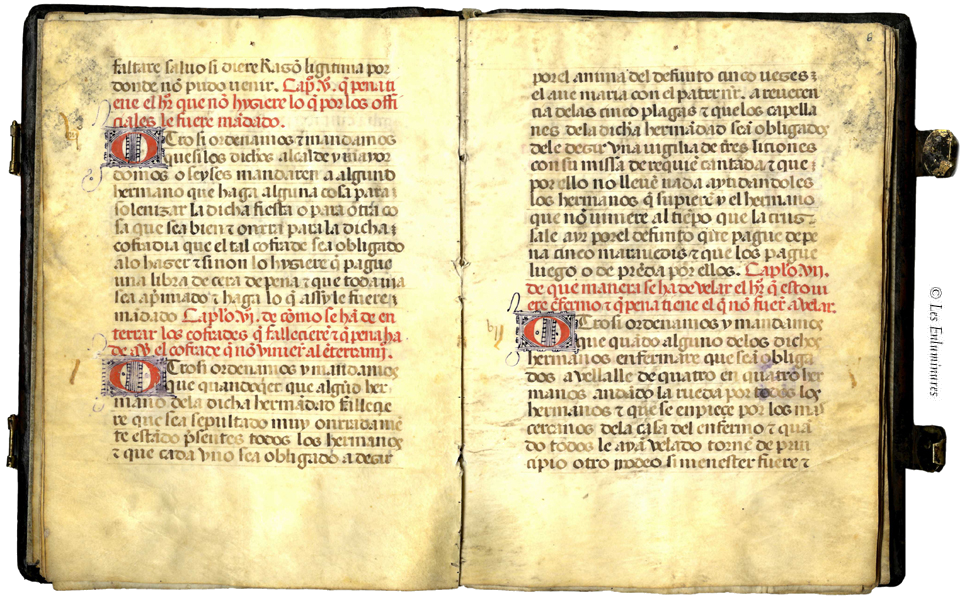 faltare saluo si diere Ragõ ligitima por
donde nõ pudo uenir. Capº. v. q̃ pena ti
ene el hrº que nõ hyziere lo q̃ por los offi
ciales le fuere mãdado.
OTrosi ordenamos τ mandamos
que si los dichos alcalde y mayor
domos o seyses mandaren a algund
hermano que haga alguna cosa para
solenizar la dicha fiesta o para otra co
sa que sea bien τ onrra para la dicha
cofradia que el tal cofrade sea obligado
a lo hazer τ si non lo hyziere q̃ pague
una libra de cera de pena τ que todauia
sea ap̃miado τ haga lo q̃ assy le fuere
mãdado Caplºo vj. de cõmo se hã de en
terrar los cofrades q̃ fallecierẽ τ q̃ pena ha
de aũ el cofrade q̃ nõ viniere al ẽterramjº.
OTrosi ordenamos y mandamos
que quandoq̃er que algũd her
mano dela dicha hermãdad fallecie
re que sea sepultado muy onrradamẽ
te estãdo p̃sentes todos los hermanos
τ que cada vno sea obligado a dezir
6
por el anima del defunto cinco uezes
el aue maria con el pater nr̃. a reueren
cia delas cinco plagas τ que los capella
nes dela dicha hermãdad seã obligados
de le dezir vna vigilia de tres liciones
con su missa de requiẽ cantada τ que
por ello no lleuẽ nada ayudandoles
los hermanos q̃ supierẽ y el hermano
que nõ viniere al tiẽpo que la cruz
sale a yr por el defunto q̃ite pague de pe
na cinco marauedis τ que los pague
luego o de prẽda por ellos. Caplºo vij.
de que manera se ha de velar el hrº q̃ estoui
ere ẽfermo τ q̃ pena tiene el q̃ nõ fuerẽ a velar.
OTrosi ordenamos y mandamos
que quãdo alguno delos dichos
hermanos enfermare que seã obliga
dos a velalle de quatro en quatro her
manos andãdo la rueda por todos los
hermanos τ que se enpiece por los mas
cercanos dela casa del enfermo τ quã
do todos le ayã velado torne de prin
cipio otro rrodeo si menester fuere τ
© Les Enluminures